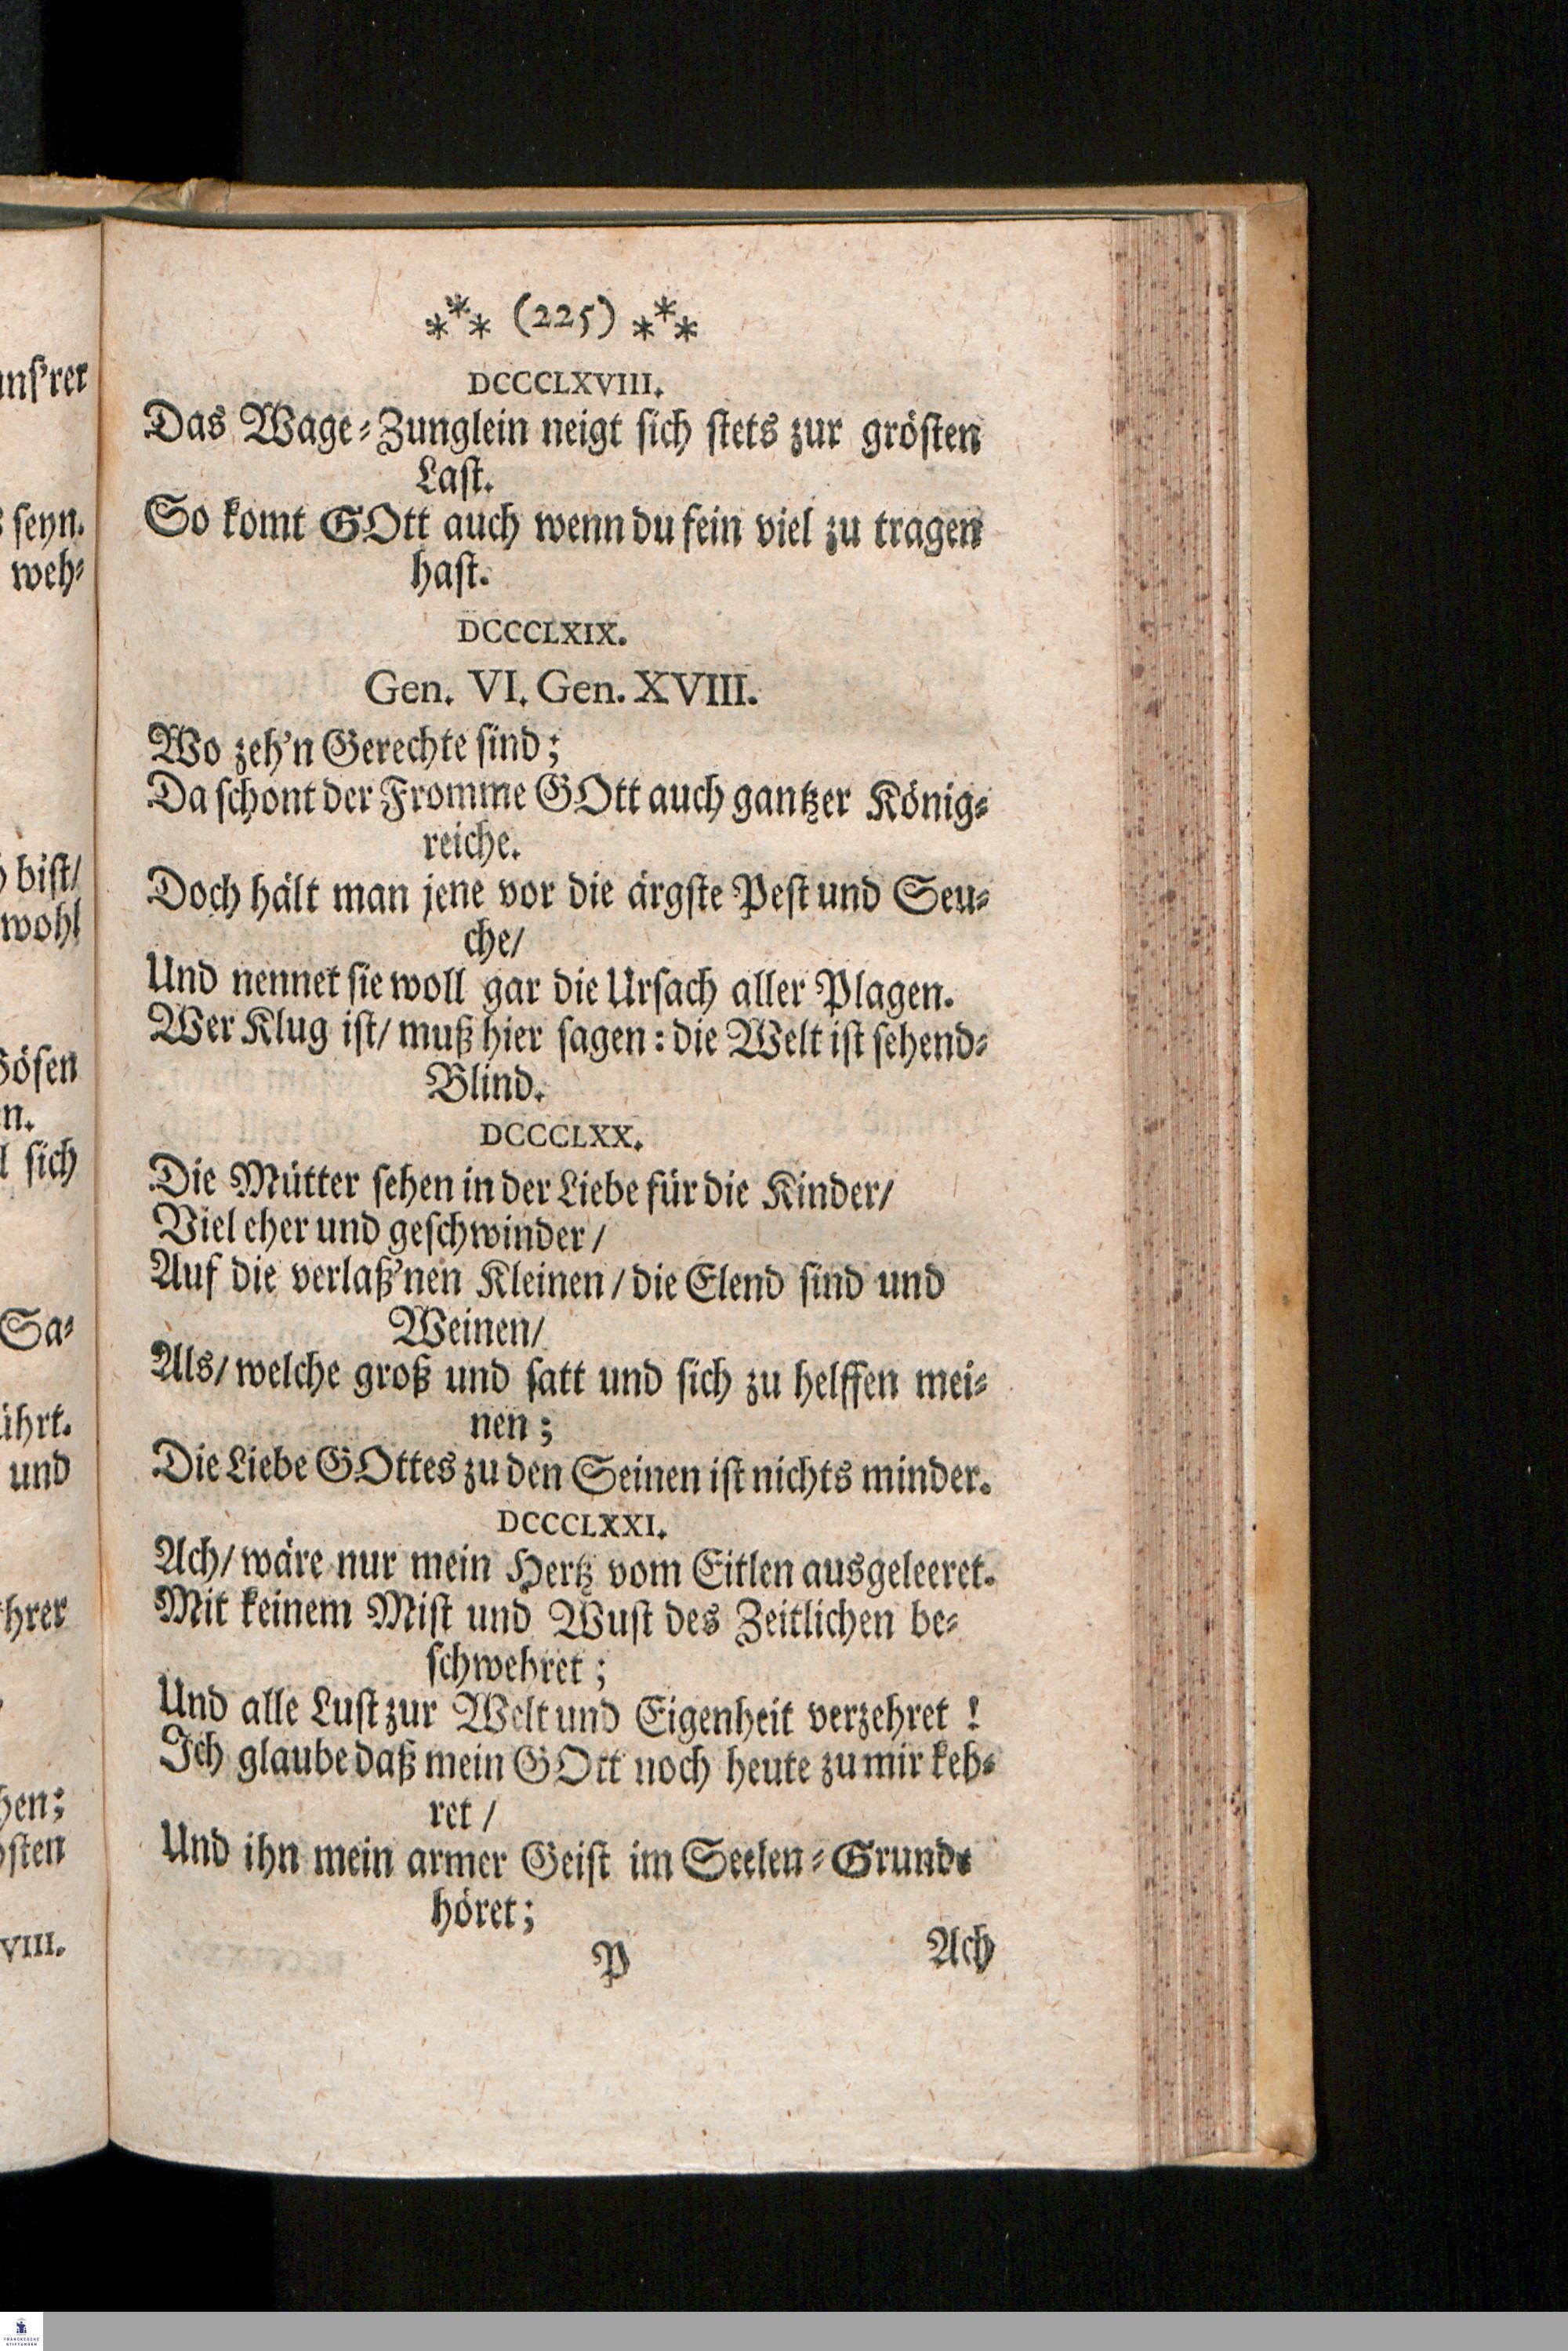 ⁂ (225) ⁂
DCCCLXVIII.
Das Wage-Zunglein neigt sich stets zur grösten
Last.
So komt GOtt auch wenn du fein viel zu tragen
hast.
DCCCLXIX.
Gen. VI. Gen. XVIII.
Wo zeh'n Gerechte sind;
Da schont der Fromme GOtt auch gantzer König-
reiche.
Doch hält man jene vor die ärgste Pest und Seu-
che/
Und nennet sie woll gar die Ursach aller Plagen.
Wer Klug ist/ muß hier sagen: die Welt ist sehend-
Blind.
DCCCLXX.
Die Mütter sehen in der Liebe für die Kinder/
Viel eher und geschwinder/
Auf die verlaß'nen Kleinen/ die Elend sind und
Weinen/
Als/ welche groß und satt und sich zu helffen mei-
nen;
Die Liebe GOttes zu den Seinen ist nichts minder.
DCCCLXXI.
Ach/ wäre nur mein Hertz vom Eitlen ausgeleeret.
Mit keinem Mist und Wust des Zeitlichen be-
schwehret;
Und alle Lust zur Welt und Eigenheit verzehret!
Ich glaube daß mein GOtt noch heute zu mir keh-
ret/
Und ihn mein armer Geist im Seelen-Grunde
höret;
P Ach
seyn.
weh-
bist/
wohl
n.
sich
Sa-
und
VIII.
FRANCKESCHE
STIFTUNGEN